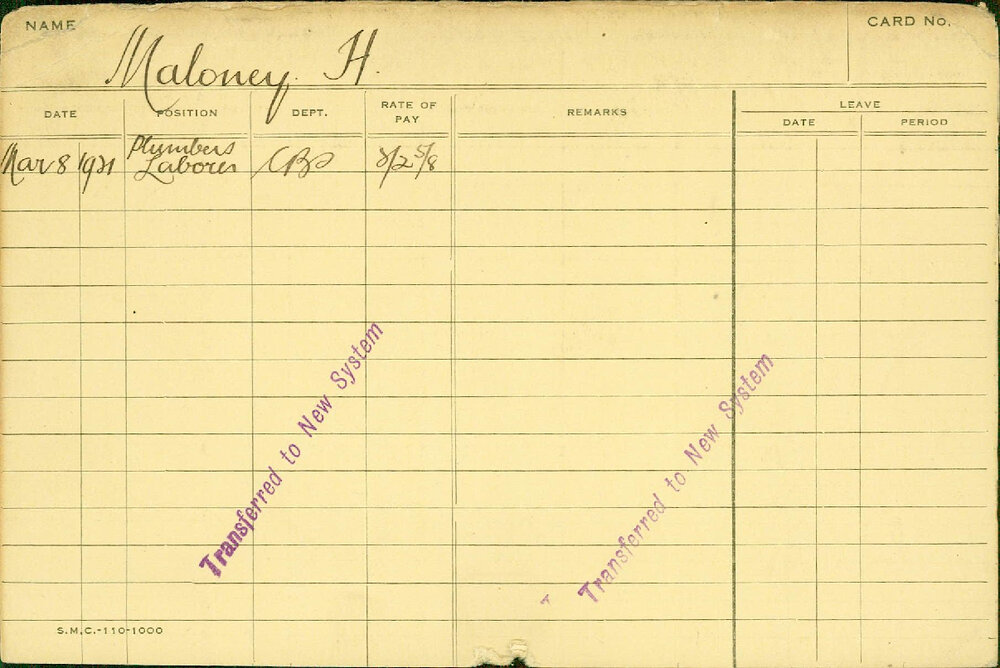 NAME
CARD No.
Maloney. H.
DATE
POSITION
DEPT.
RATE OF PAY
REMARKS
LEAVE
DATE
PERIOD
Mar 8 1921 Plumbers
Laborer 2 5/8
Transferred to New System
Transferred to New System
S.M.C.-110-1000